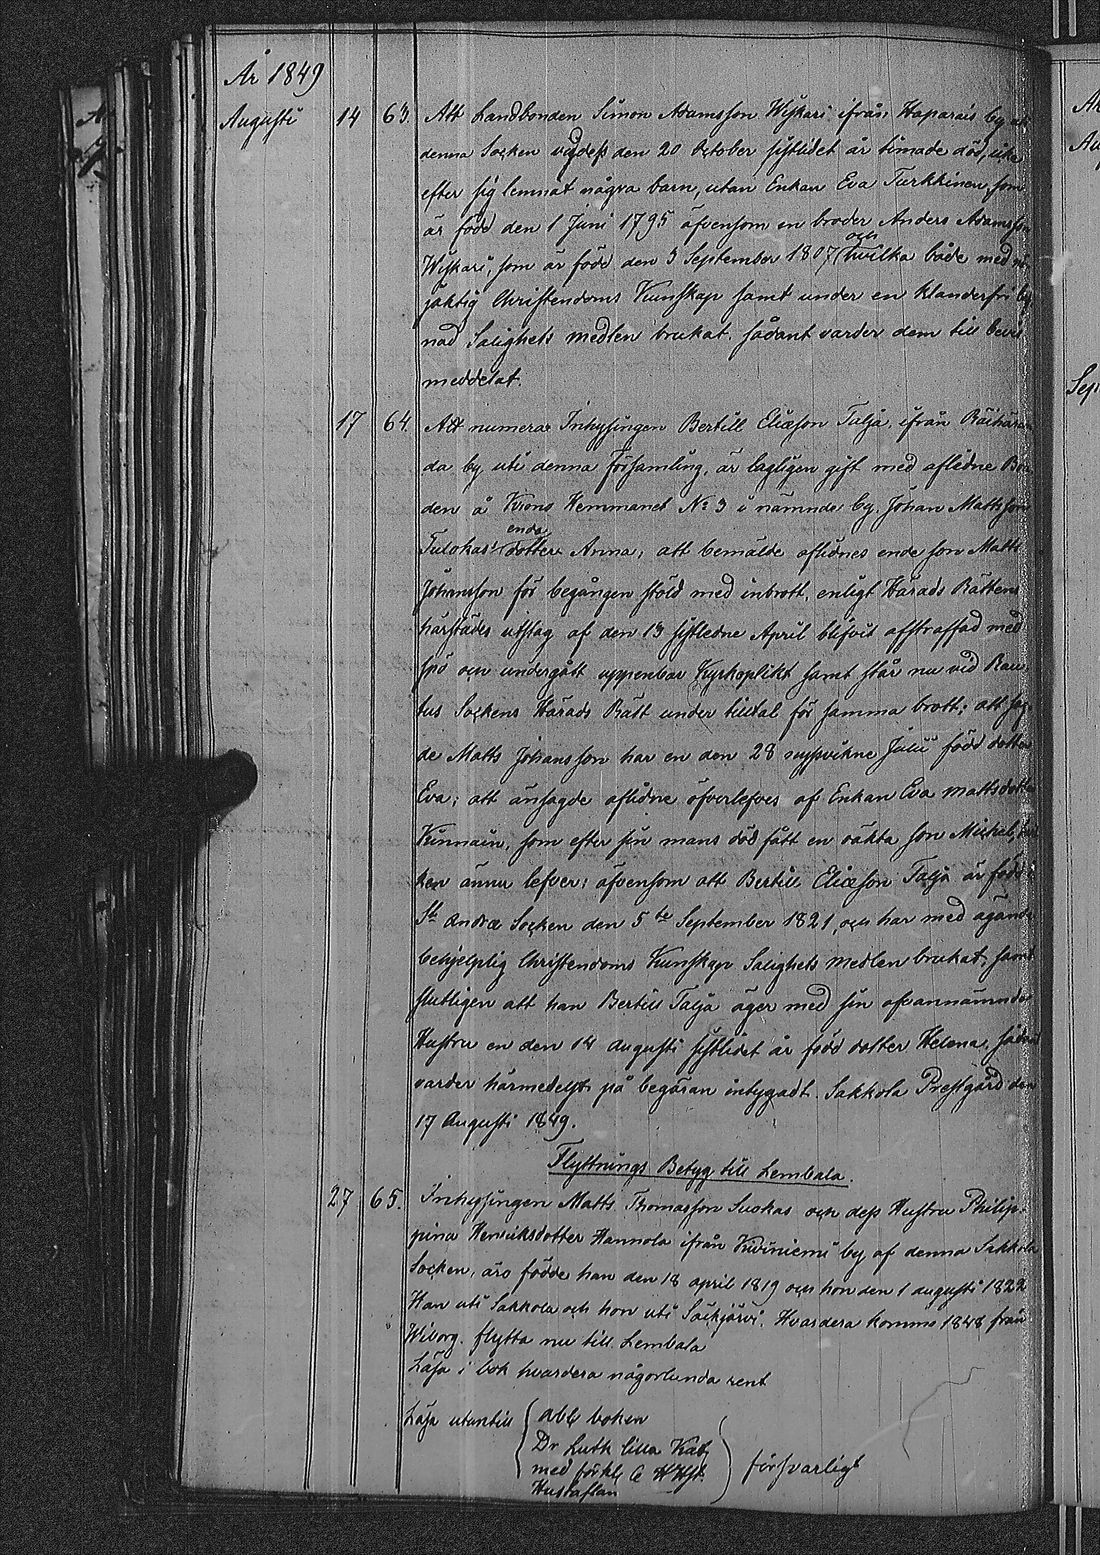 År 1849
Augusti 14 63. Att Landbonden Simon Adamsson Wiskari ifrån Haparais by uti
denna Socken vidpass den 20 October sistlidet år timade död, icke
efter sig lemnat några barn, utan Enkan Eva Turkkinen, som
är född den 1 Juni 1795 äfvensom en broder Anders Adamsson
Wiskari, som är född den 3 September 1807 och hvilka både med nö
jaktig Christendoms Kunskap samt under en klanderfri lef
nad Salighets medlen brukat. Sådant varder dem till bevis
meddelat.
17 64. Att numera Inhysingen Bertill Eliæson Talja, ifrån Räihäran
da by, uti denna församling, är lagligen gift med aflidne Bon
den å Krono Hemmanet No 3 i nämnde by, Johan Mattsson
Tulokas' enda dotter Anna; att bemälde aflidnes ende son Matts
Johansson för begången stöld med inbrott, enligt Härads Rättens
härstädes utslag af den 13 sistledne April blifvit afstraffad med
spö och undergått uppenbar Kyrkoplikt samt står nu vid Rau
tus Sockens Härads Rätt under tilltal för samma brott; att sag
de Matts Johansson har en den 28 nyssvikne Julii född dotter
Eva; att änsagde aflidne öfverlefves af Enkan Eva Mattsdotter
Kinnain, som efter sin mans död fått en oäkta son Mickel, hvil
ken ännu lefver; äfvensom att Bertill Eliæson Talja är född i
St Andræ Socken den 5te September 1821, och har med ägande
behjelplig Christendoms Kunskap Salighets medlen brukat, samt
slutligen att han Bertill Talja äger med sin ofvannämnda
Hustru en den 14 Augusti sistlidet år född dotter Helena, sådant
varder härmedelst på begäran intygadt. Sakkola Prestgård den
17 Augusti 1849.
Flyttnings Betyg till Lembala.
27 65. Inhysingen Matts Thomasson Suokas och dess Hustru Philip
pina Henriksdotter Hannola ifrån Kiviniemi by af denna Sakkola
Socken, äro födde han den 18 April 1819 och hon den 1 Augusti 1822
Han uti Sakkola och hon uti Säkjärvi. Hvardera komne 1848 från
Wiborg. flytta nu till Lembala
Läsa i bok hvardera någorlunda rent
Läsa utantill abc boken
Dr Luth lilla Kat.
med förkl. försvarligt
Hustaflan